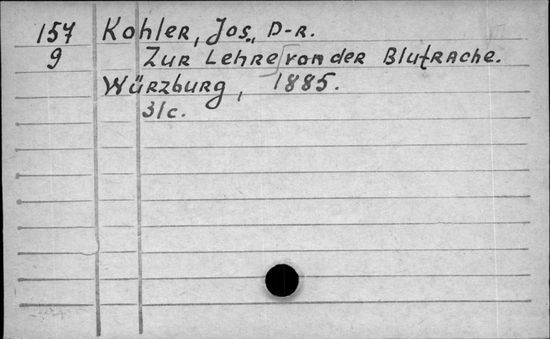 157 Kohler, Jos., D-r.
9 Zur Lehre von der Blutrache.
Würzburg, 1885.
31c.